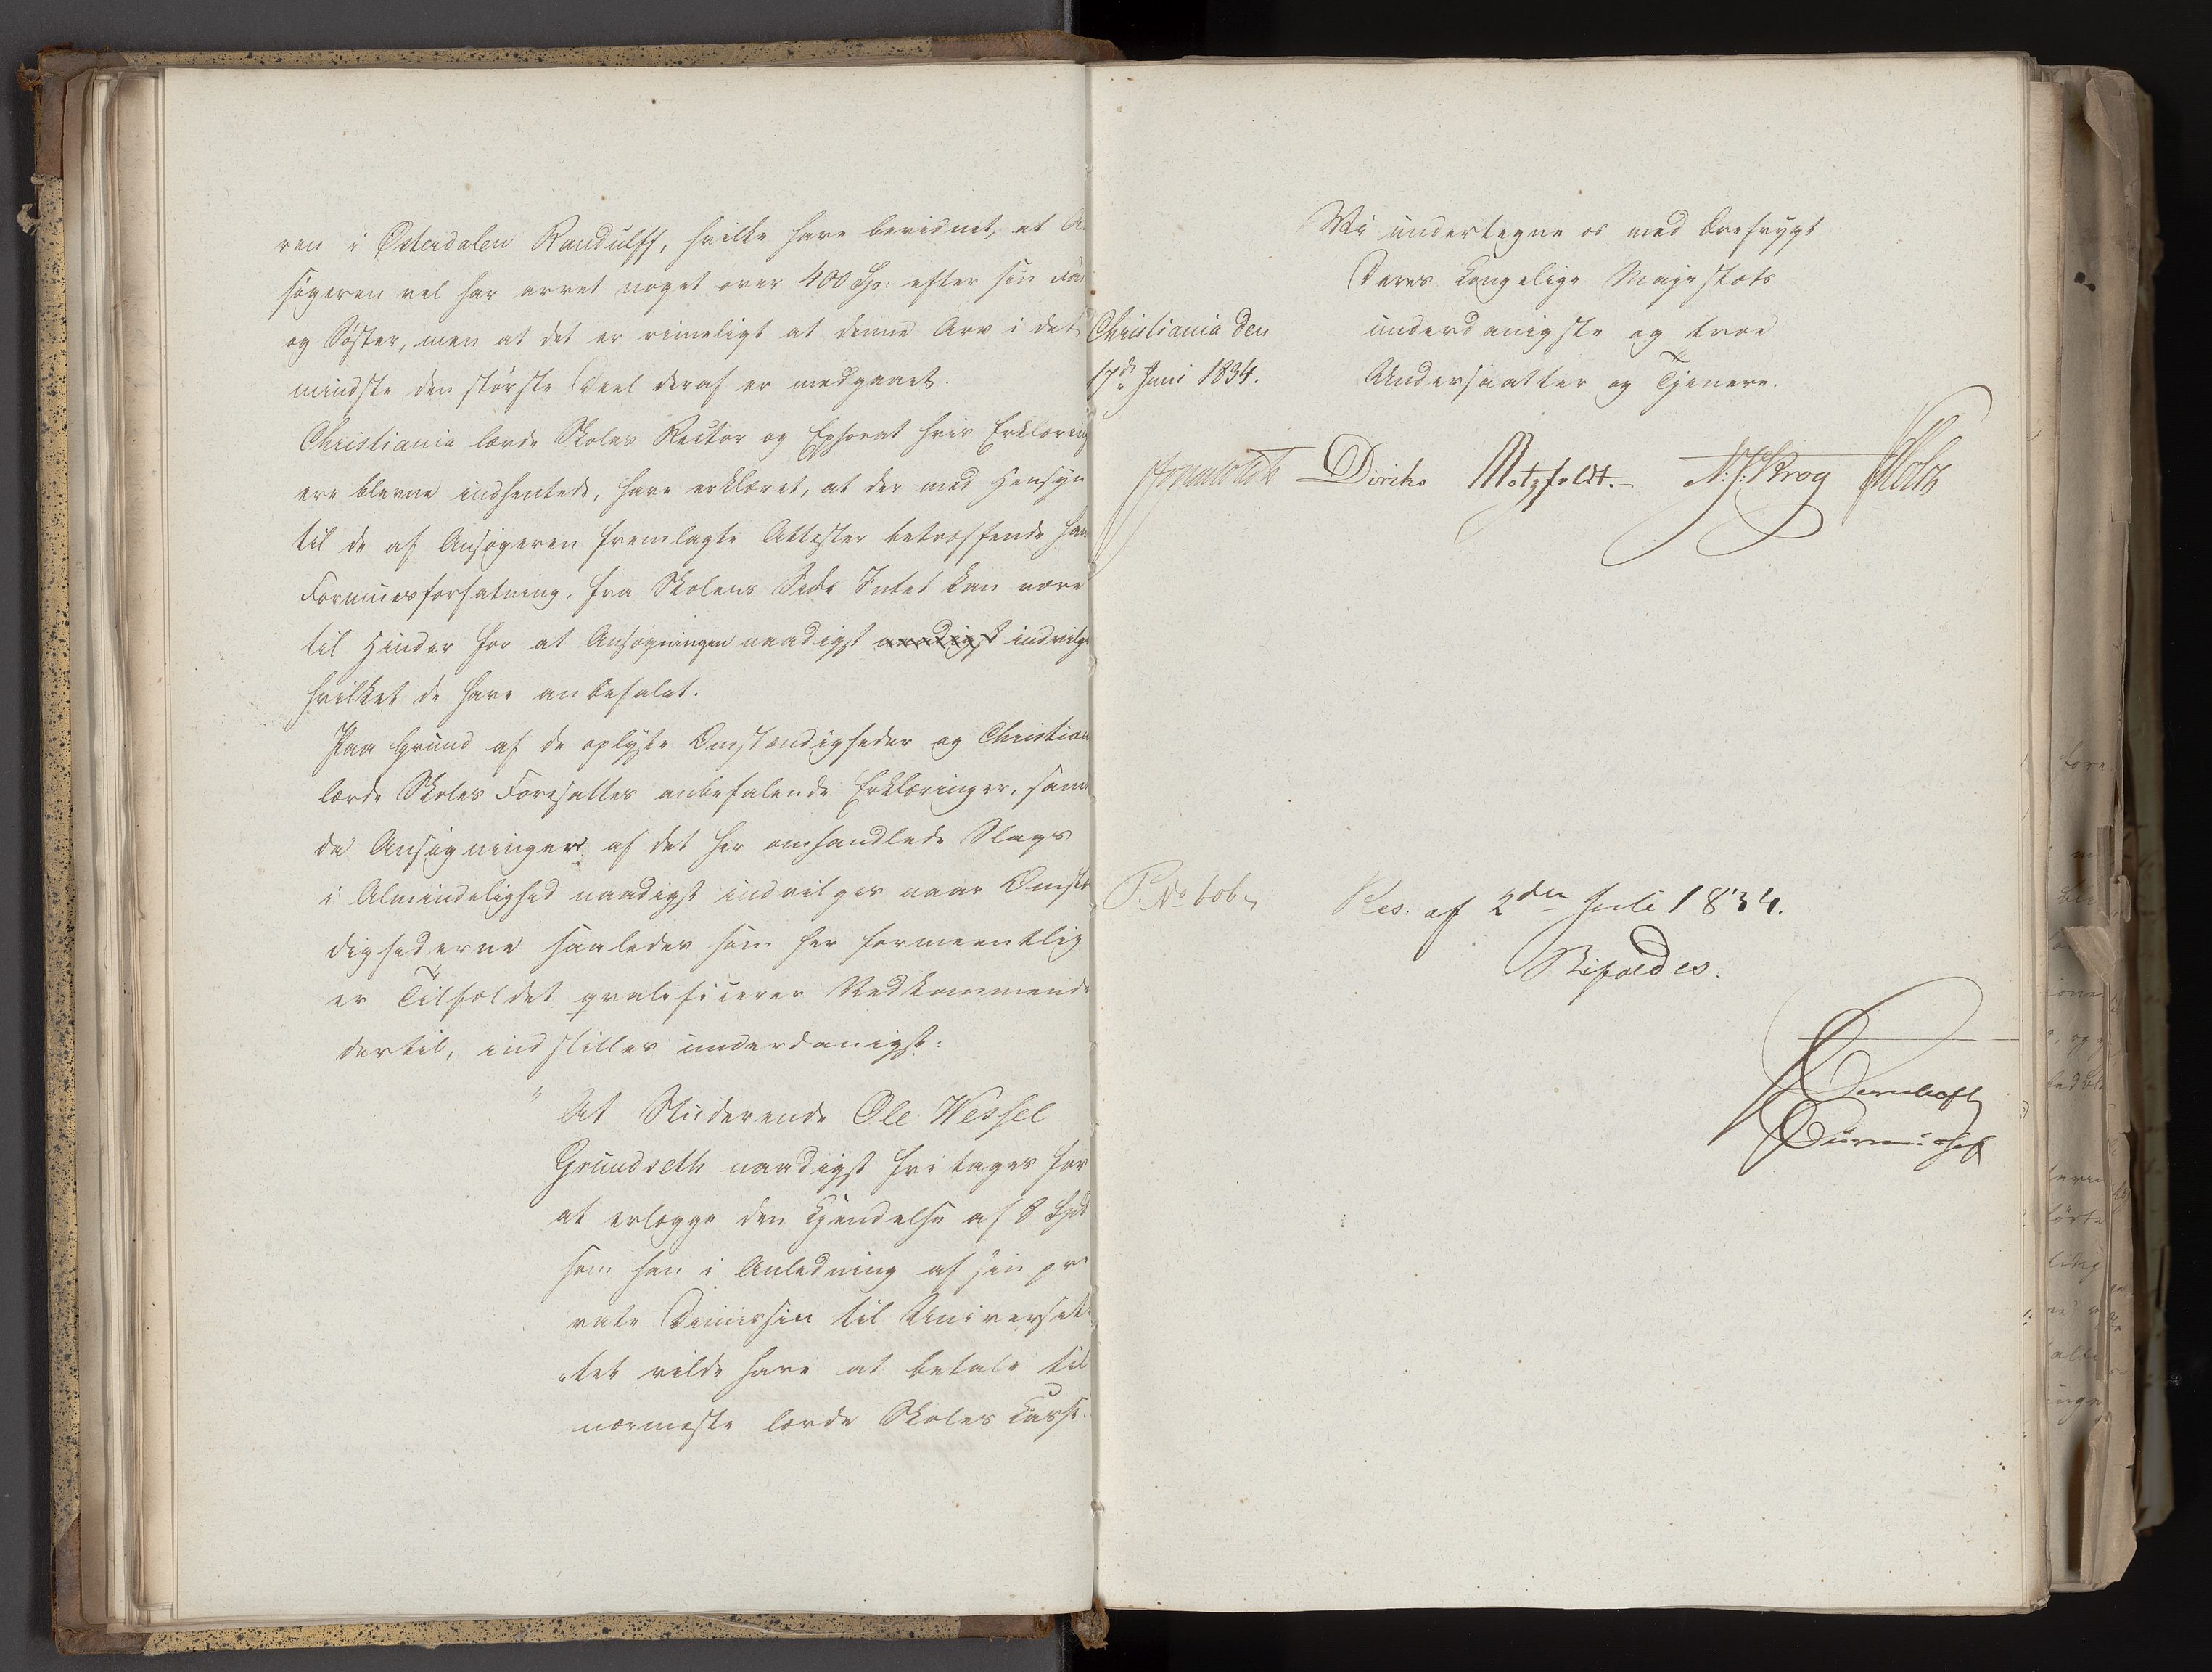 ren i Österdalen Randulff, hvilke have bevidnet, at A
søgeren vel har arvet noget over 400 Sp: efter sin Fa
og Søster, men at det er rimeligt at denne Arv i det
mindste den største Deel deraf er medgaaet.
Christiania lærde Skoles Rector og Ephorat hvis Erklæring
ere blevne indhentede, have erklæret, at der med Hensyn
til de af Ansøgeren fremlagte Attester betræffende han
Formuesforfatning, fra Skolens Side Intet kan være
til Hinder for at Ansøgningen naadigst naadigst indvilge
hvilket de have anbefalet.
Paa Grund af de oplyste Omstændigheder og Christian
lærde Skoles Foresattes anbefalende Erklæringer, samt
da Ansøgninger af det her omhandlede Slags
i Almindelighed naadigst indvilges naar Omstæ
dighederne saaledes som her formeentlig
er Tilfældet qvalificerer Vedkommende
dertil, indstilles underdanigst:
" At Studerende Ole Wessel
Grundseth naadigst fritages for
at erlægge den Kjendelse af 8 Spd
som han i Anledning af sin pri
vate Dimission til Universite
tet vilde have at betale til
nærmeste lærde Skoles Kasse.
Vi undertegne os med Ærefrygt
Deres Kongelige Majestæts
underdanigste og troe
Undersaatter og Tjenere.
Christiania den
17de Juni 1834.
Diriks Motzfeldt. N. J. Krog Holst
P. No 606
Res: af 2den Juli 1834.
Bifaldes.